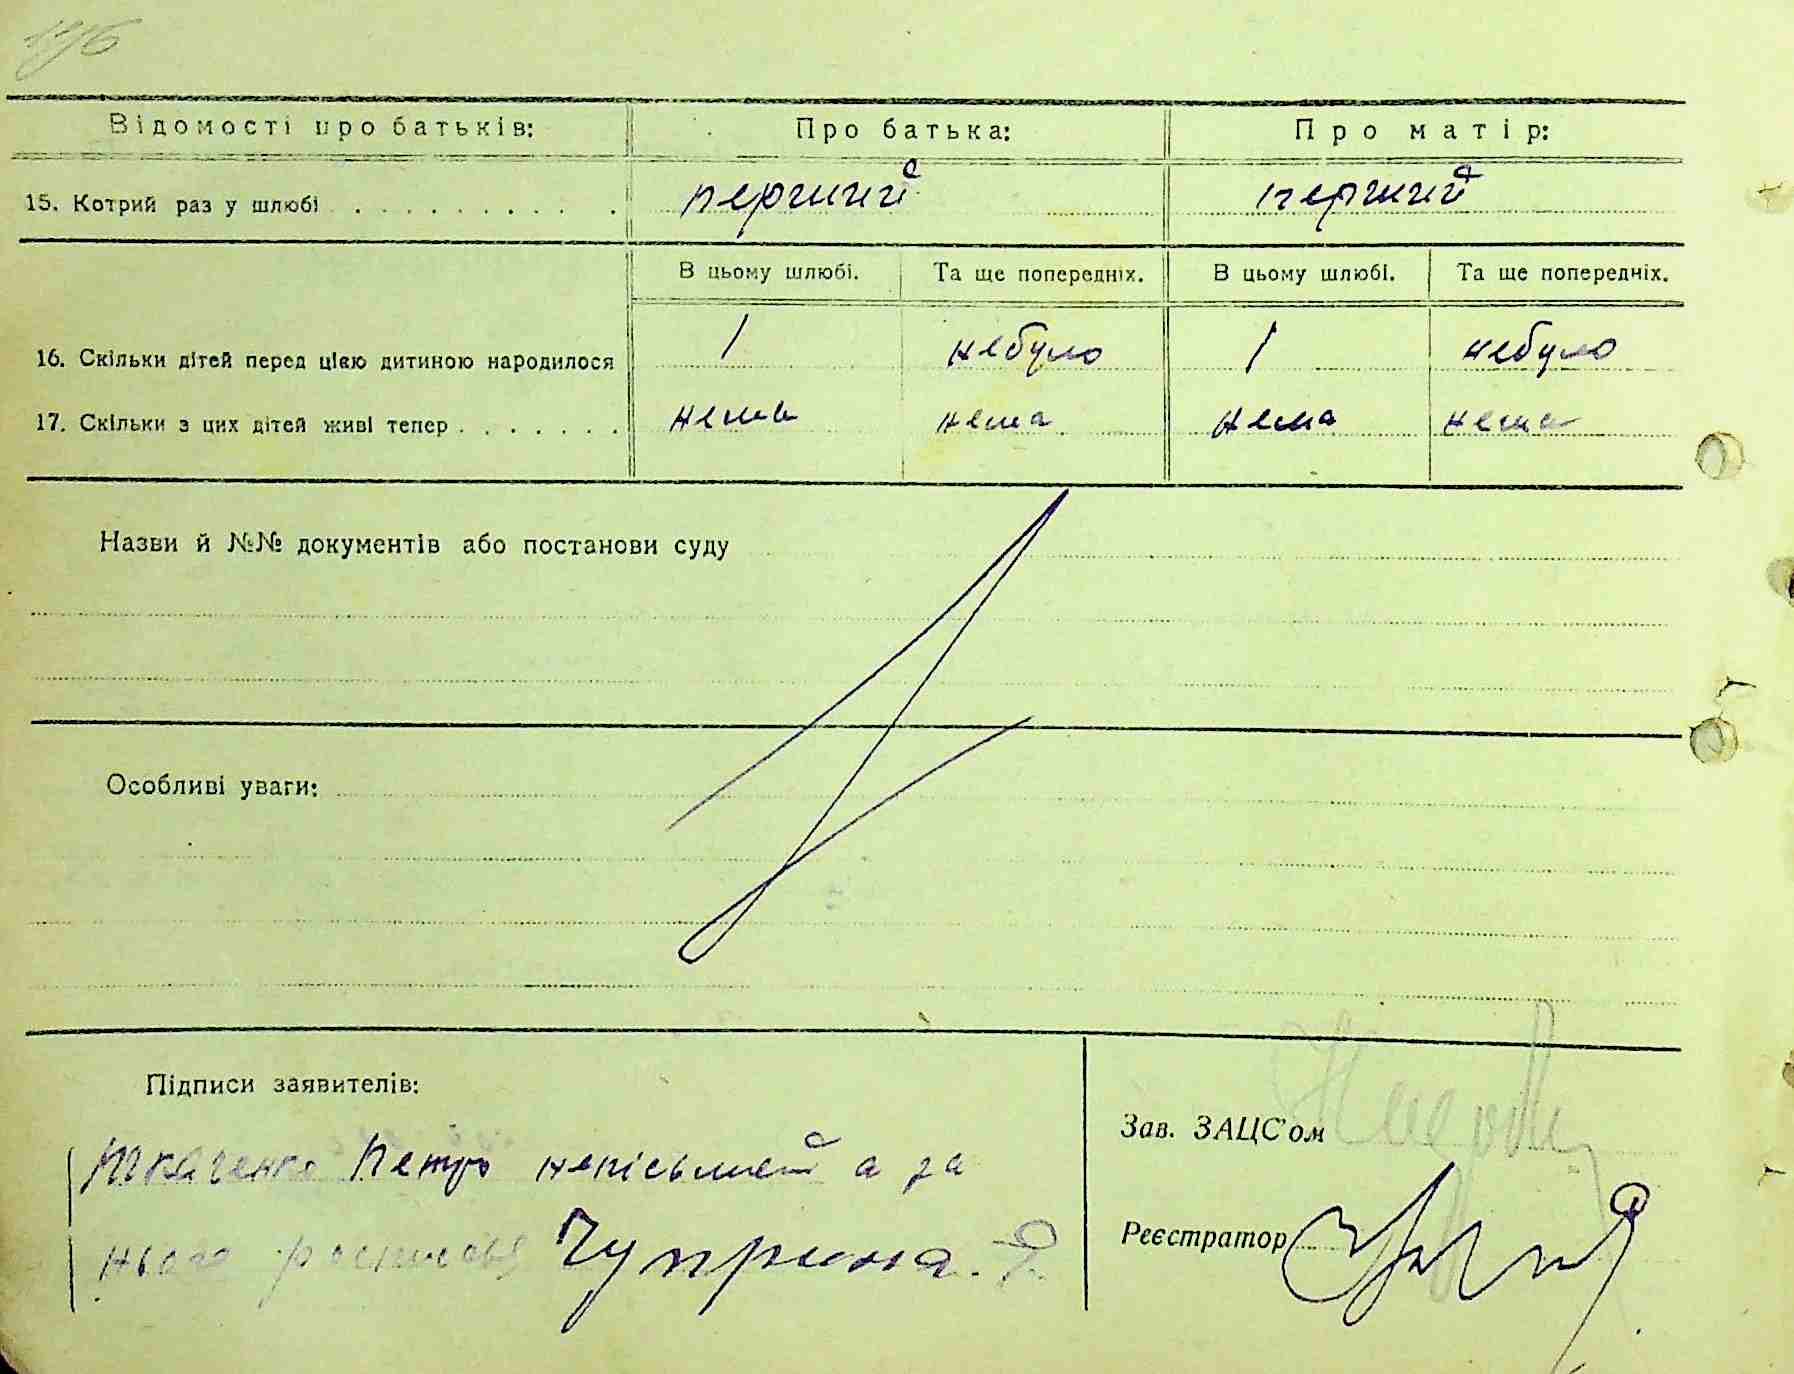 Відомості про батьків: Про батька: Про матір:
15. Котрий раз у шлюбі . . . . . . . . . . перший перший
В цьому шлюбі. Та ще попередніх. В цьому шлюбі. Та ще попередніх.
16. Скільки дітей перед цією дитиною народилося 1 небуло 1 небуло
17. Скільки з цих дітей живі тепер . . . . . . . нема нема нема нема
Назви й №№ документів або постанови суду
Особливі уваги:
Підписи заявителів:
Зав. ЗАЦС'ом
Ткаченко Петро неписьмений а за
Реєстратор
нього росписався Чуприна